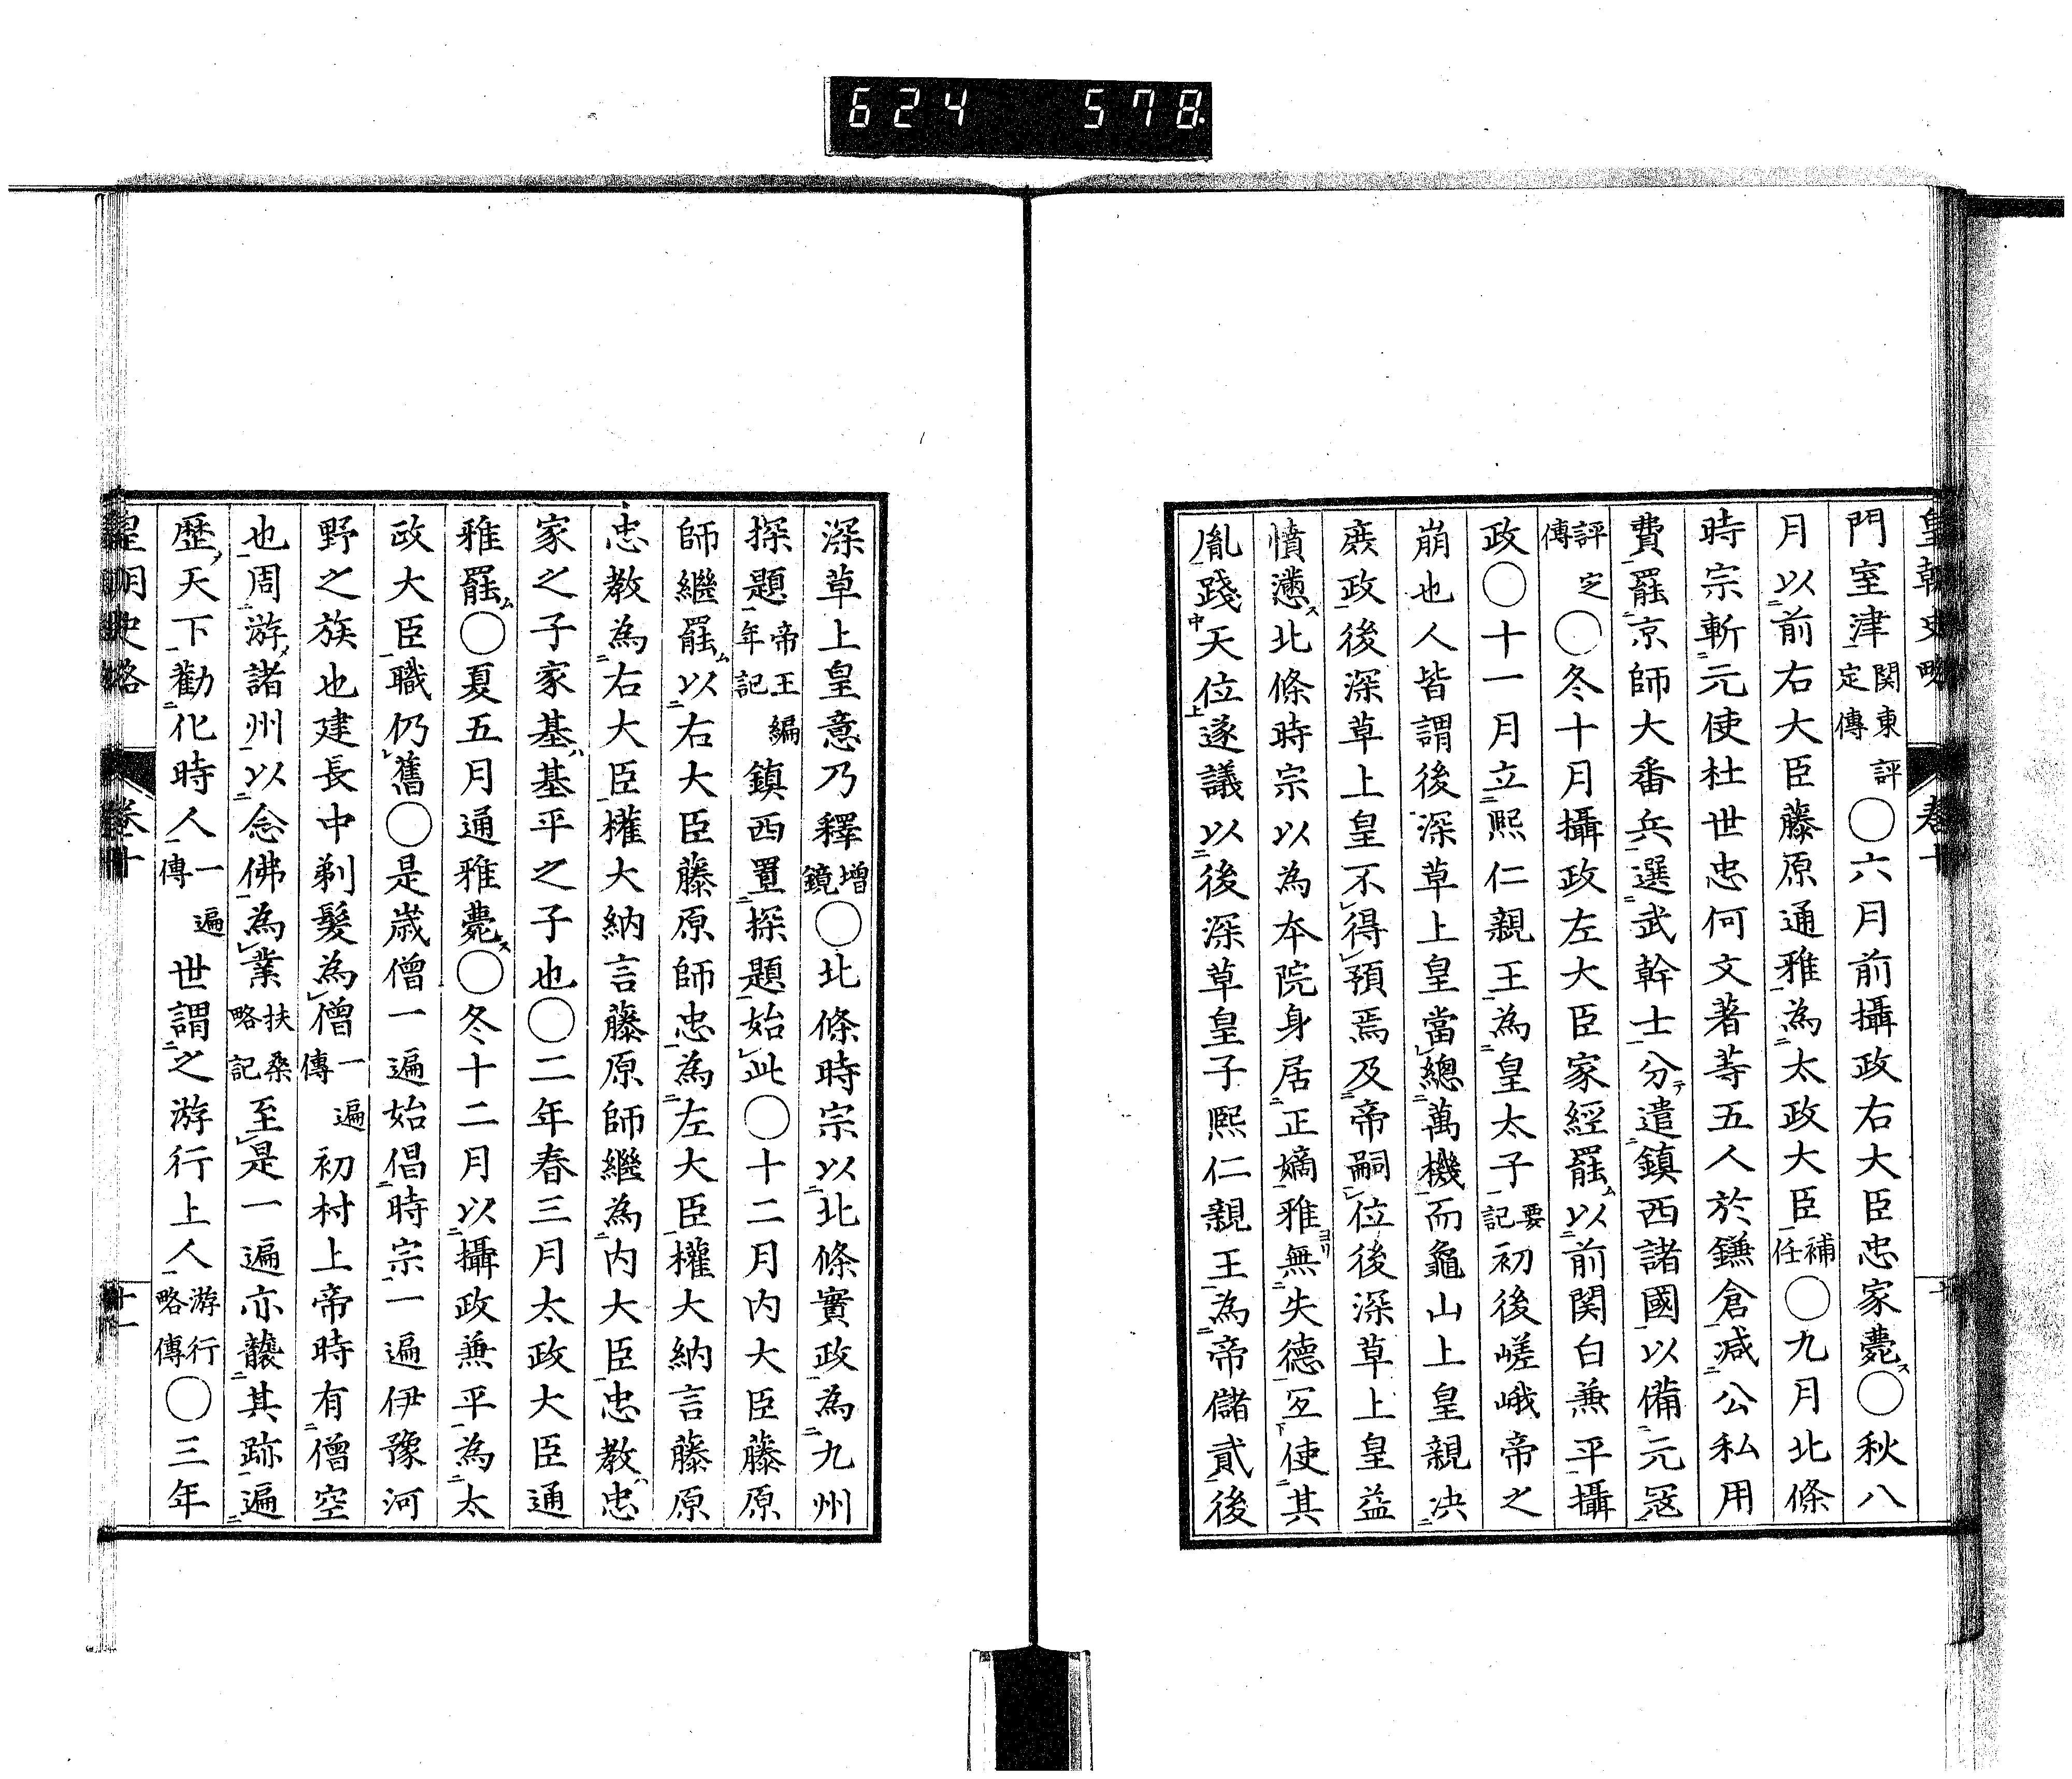 624 578.
皇朝史略 卷十
門室津関東評定傳○六月前攝政右大臣忠家薨ス○秋八
月以前右大臣藤原通雅為太政大臣補任○九月北條
時宗斬元使杜世忠何文著等五人於鎌倉減公私用
費罷京師大番兵選武幹士分テ遣鎮西諸國以備元冦
評定傳○冬十月攝政左大臣家經罷ム以前関白兼平攝
政○十一月立熙仁親王為皇太子要記初後嵯峨帝之
崩也人皆謂後深草上皇當總萬機而龜山上皇親决
庶政後深草上皇不得預焉及帝嗣位後深草上皇益
憤懣ス北條時宗以為本院身居正嫡雅ヨリ無失德互下使其
胤踐中天位上遂議以後深草皇子熙仁親王為帝儲貳後
深草上皇意乃釋増鏡○北條時宗以北條實政為九州
探題帝王編年記鎮西置探題始此○十二月内大臣藤原
師繼罷ム以右大臣藤原師忠為左大臣權大納言藤原
忠教為右大臣權大納言藤原師繼為内大臣忠教ハ忠
家之子家基ハ基平之子也○二年春三月太政大臣通
雅罷ム○夏五月通雅薨ス○冬十二月以攝政兼平為太
政大臣職仍舊○是歳僧一遍始倡時宗一遍伊豫河
野之族也建長中剃髮為僧一遍傳初村上帝時有僧空
也周游メ諸州以念佛為業扶桑略記至是一遍亦襲其跡遍
歷メ天下勸化時人一遍傳世謂之游行上人游行略傳○三年
皇朝史略 卷十 十一